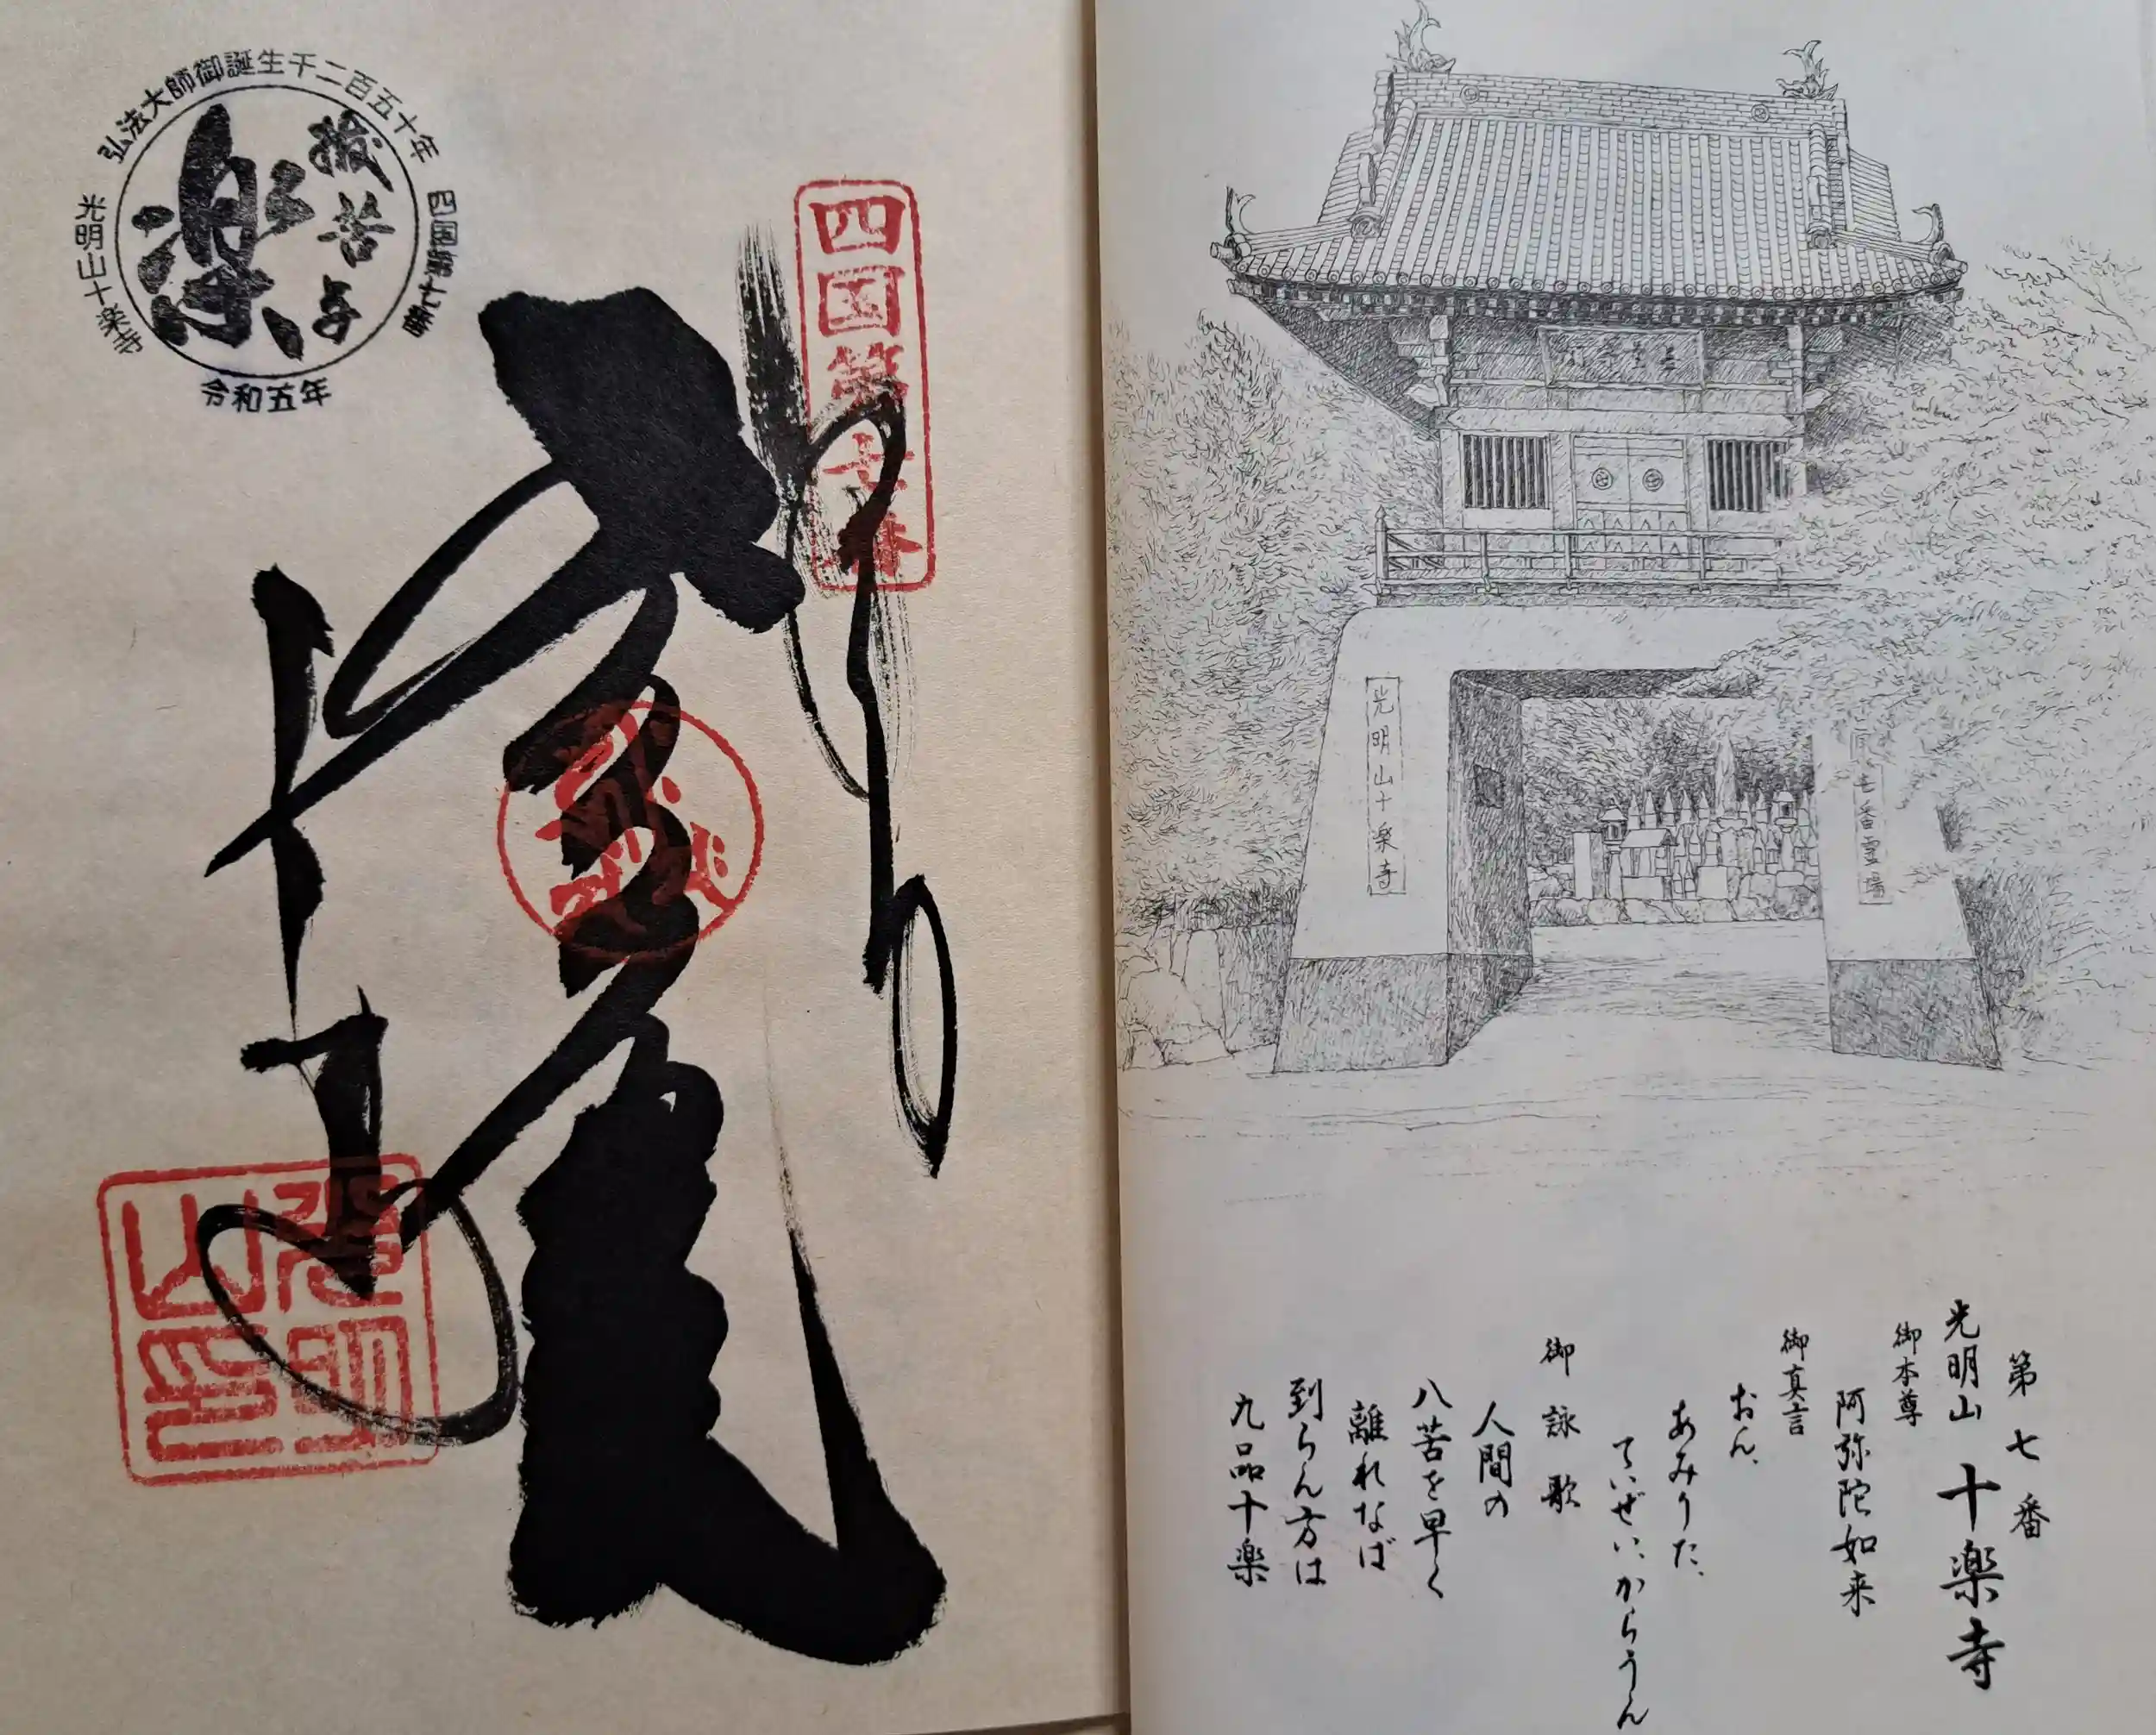 弘法大師御誕生千二百五十年
四国第七番
抜苦与
楽
光明山十楽寺
令和五年
四国第七番
光明山印
光明山十楽寺
七番霊場
第七番
光明山 十楽寺
御本尊
阿弥陀如来
御真言
おん、
あみりた、
ていぜい、からうん
御詠歌
人間の
八苦を早く
離れなば
到らん方は
九品十楽